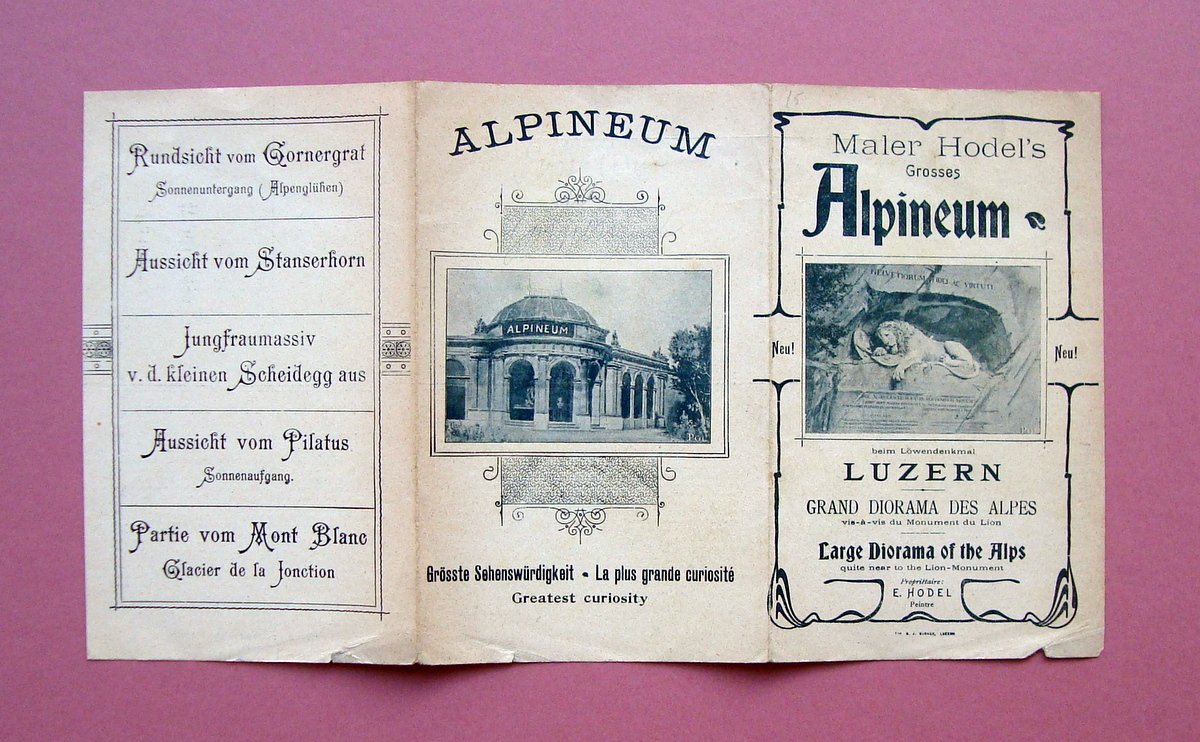 Rundsicht vom Gornergrat
Sonnenuntergang (Alpenglühen)
Aussicht vom Stanserhorn
Jungfraumassiv
v. d. kleinen Scheidegg aus
Aussicht vom Pilatus
Sonnenaufgang.
Partie vom Mont Blanc
Glacier de la Jonction
ALPINEUM
ALPINEUM
Grösste Sehenswürdigkeit - La plus grande curiosité
Greatest curiosity
15
Maler Hodel's
Grosses
Alpineum
HELVETIORUM FIDEI AC VIRTUTI
Neu!
Neu!
beim Löwendenkmal
LUZERN
GRAND DIORAMA DES ALPES
vis-à-vis du Monument du Lion
Large Diorama of the Alps
quite near to the Lion-Monument
Propriétaire:
E. HODEL
Peintre